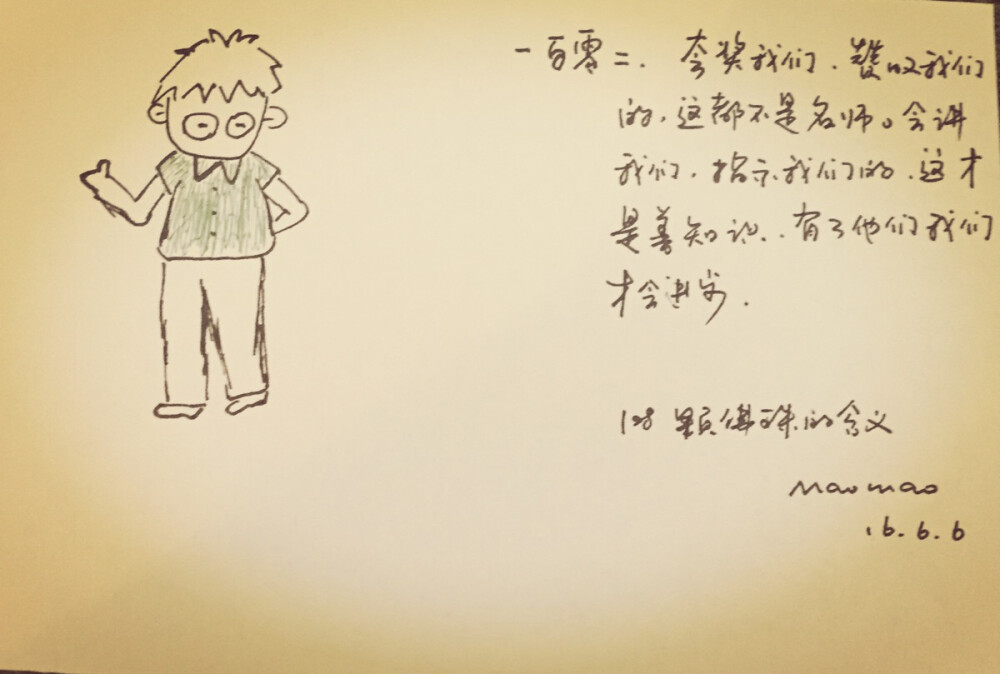 一百零二. 夸奖我们. 赞叹我们
的, 这都不是名师。会讲
我们, 指示我们的, 这才
是善知识, 有了他们我们
才会进步.
108 颗佛珠的含义
maomao
16.6.6